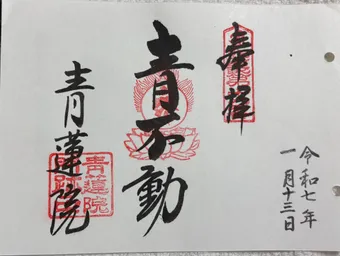 奉拝
令和七年
一月十三日
青不動
青蓮院
青蓮院